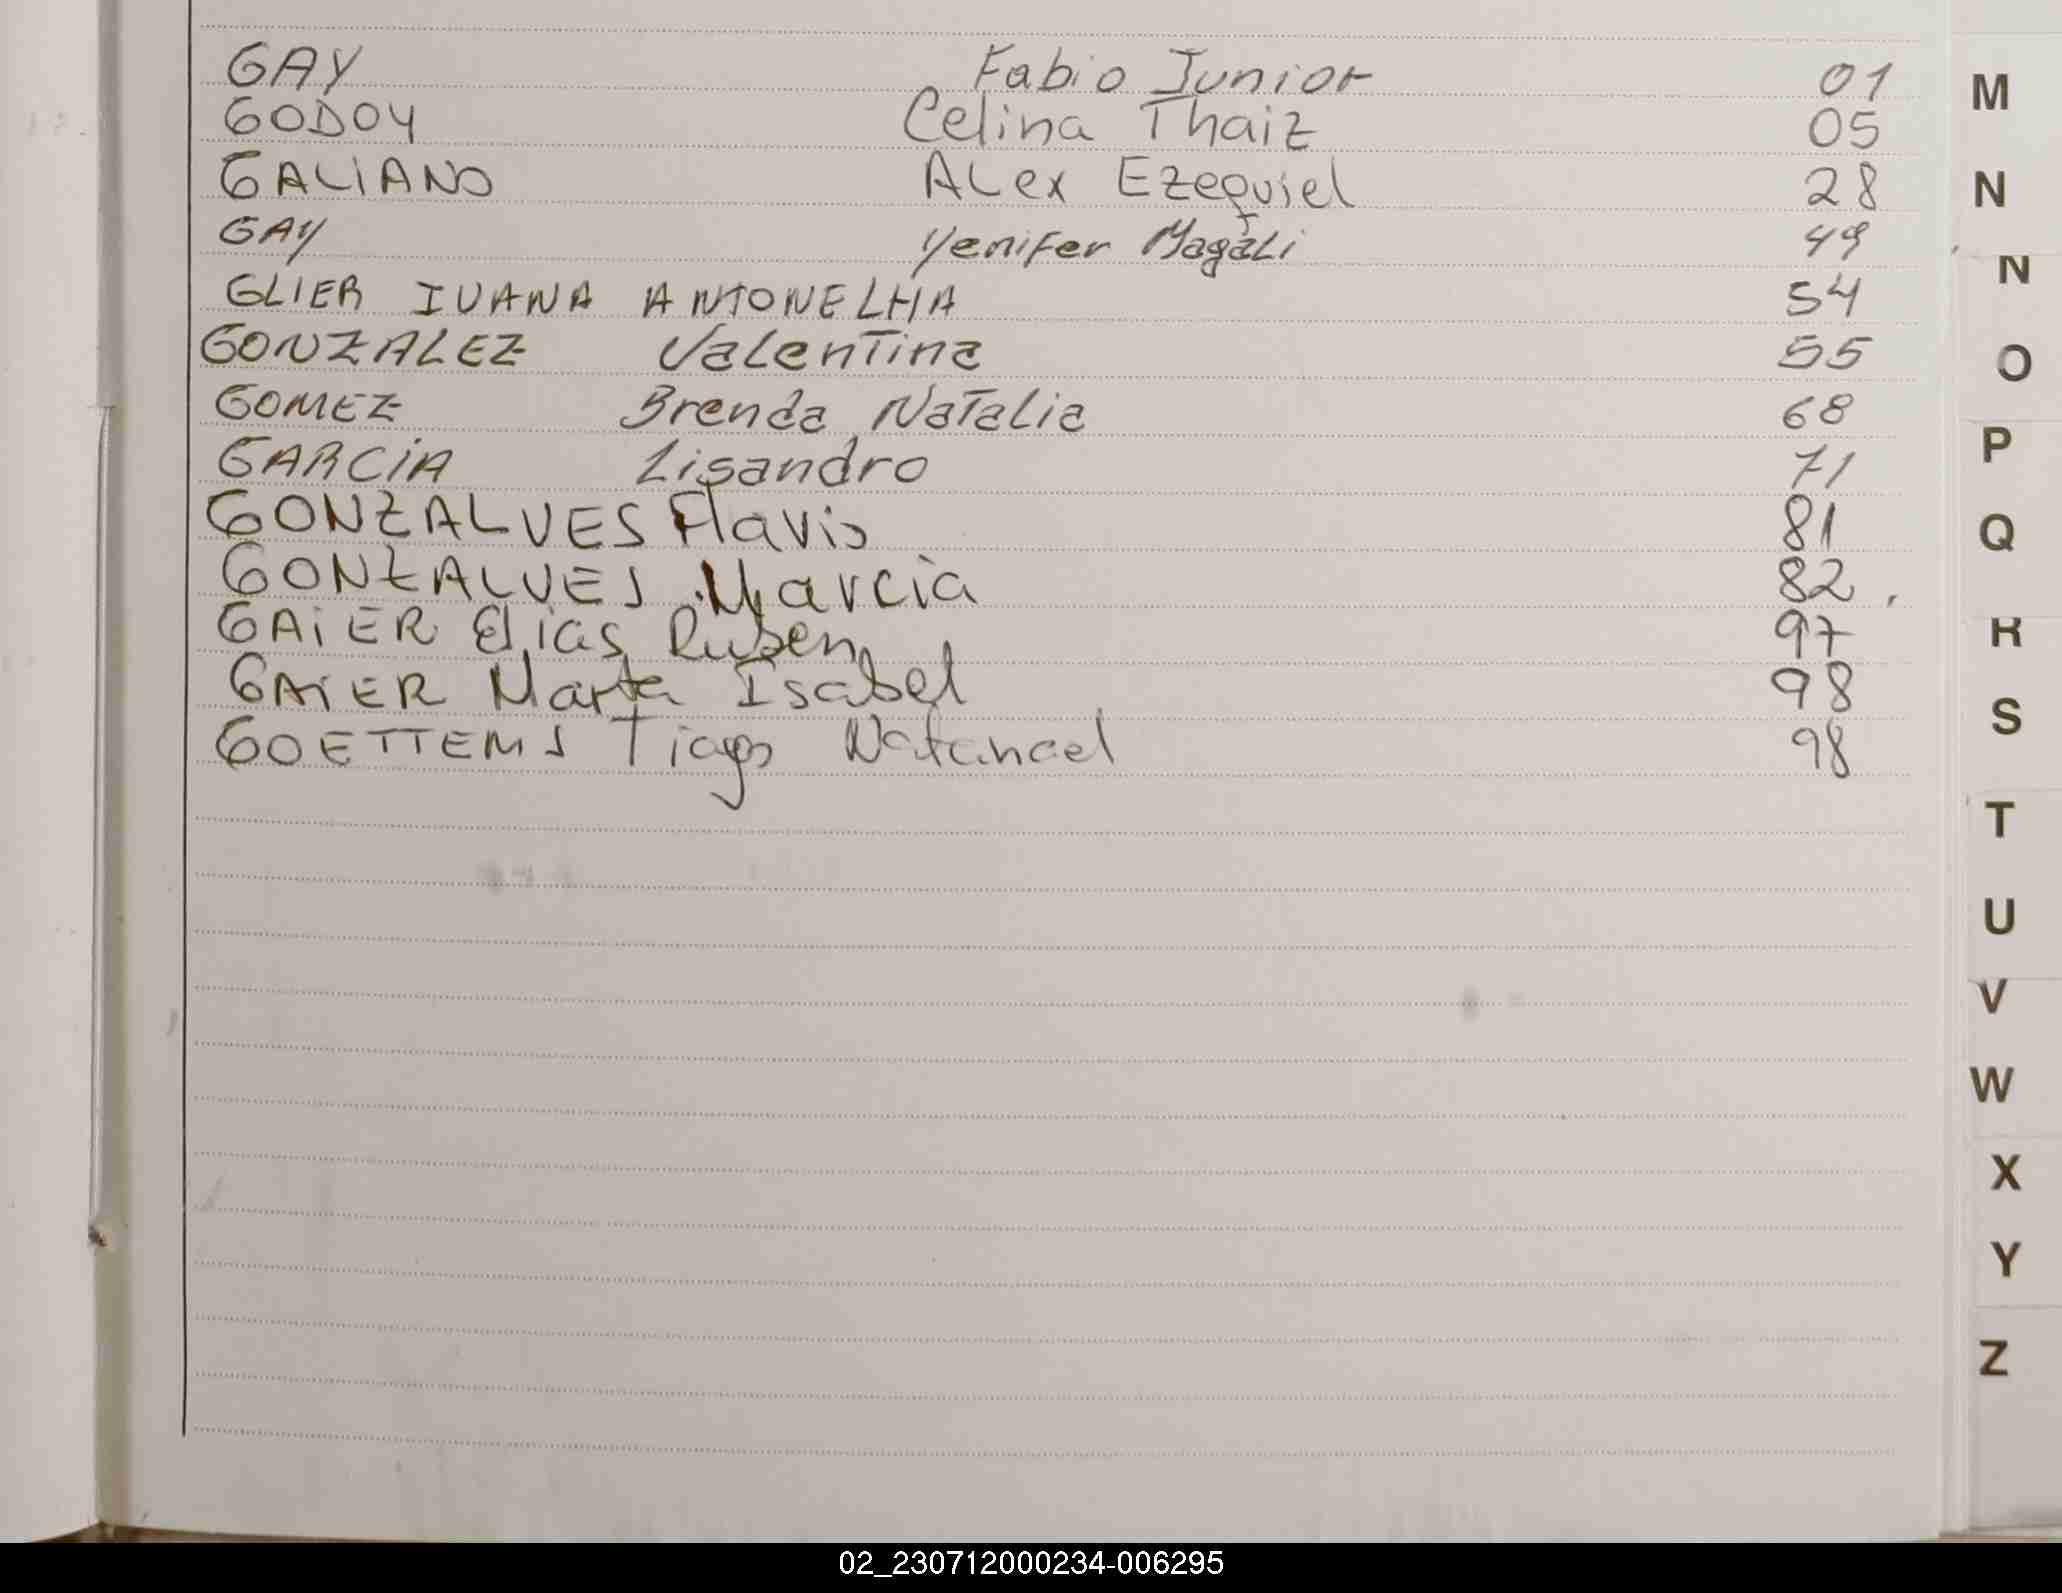 GAY Fabio Junior 01
GODOY Celina Thaiz 05
GALIANO ALex Ezequiel 28
GAY Yenifer Magali 49
GLIER IVANA ANTONELHA 54
GONZALEZ Valentina 55
GOMEZ Brenda Natalia 68
GARCIA Lisandro 71
GONZALVES Flavio 81
GONZALVES Marcia 82
GAIER Elias Ruben 97
GAIER Marta Isabel 98
GOETTEMS Tiago Natanael 98
M
N
N
O
P
Q
R
S
T
U
V
W
X
Y
Z
02_230712000234-006295